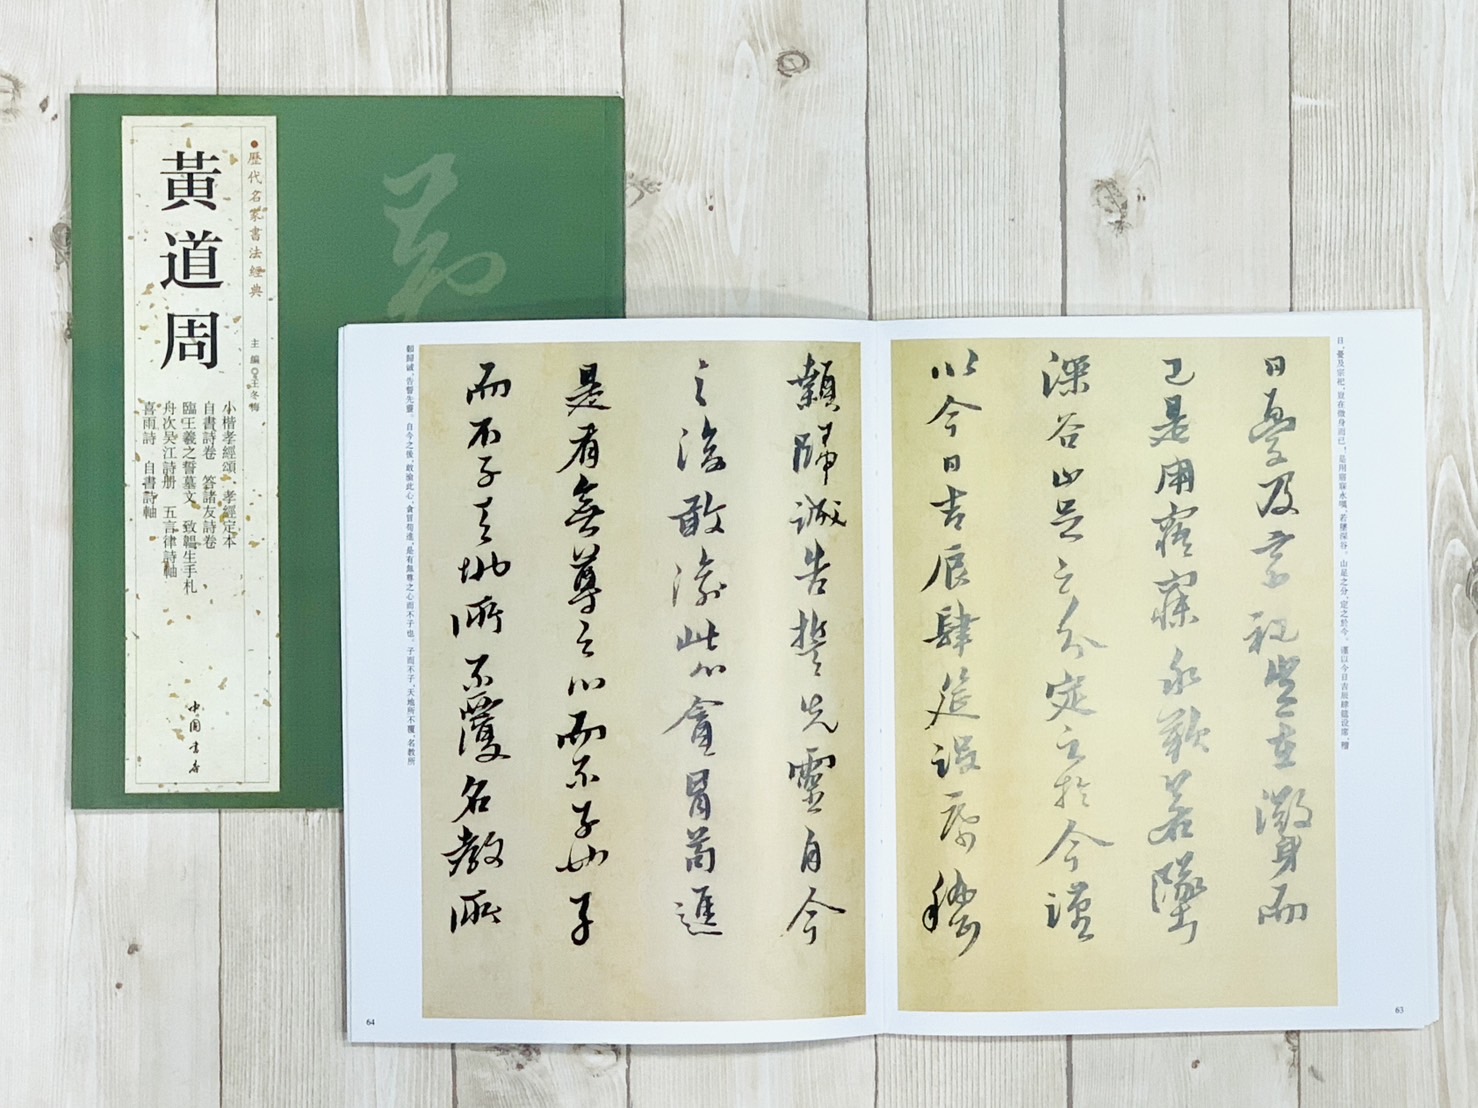 歷代名家書法經典
主編◎王冬梅
黃道周
小楷孝經頌 孝經定本
自書詩卷 答諸友詩卷
臨王羲之誓墓文 致鶥生手札
舟次吳江詩册 五言律詩軸
喜雨詩 自書詩軸
中國書店
日憂及宗祀豈在微身而
已是用寤寐永歎若墜
深谷止足之分定之於今謹
以今日吉辰肆筵設席稽
顙歸誠告誓先靈自今
之後敢渝此心貪冒苟進
是有無尊之心而不子也子
而不子天地所不覆名教所
日，憂及宗祀，豈在微身而已，是用寤寐永嘆，若墜深谷。止足之分，定之於今。謹以今日吉辰肆筵設席，稽
顙歸誠，告誓先靈。自今之後，敢渝此心，貪冒苟進，是有無尊之心而不子也。子而不子，天地所不覆，名教所
63
64